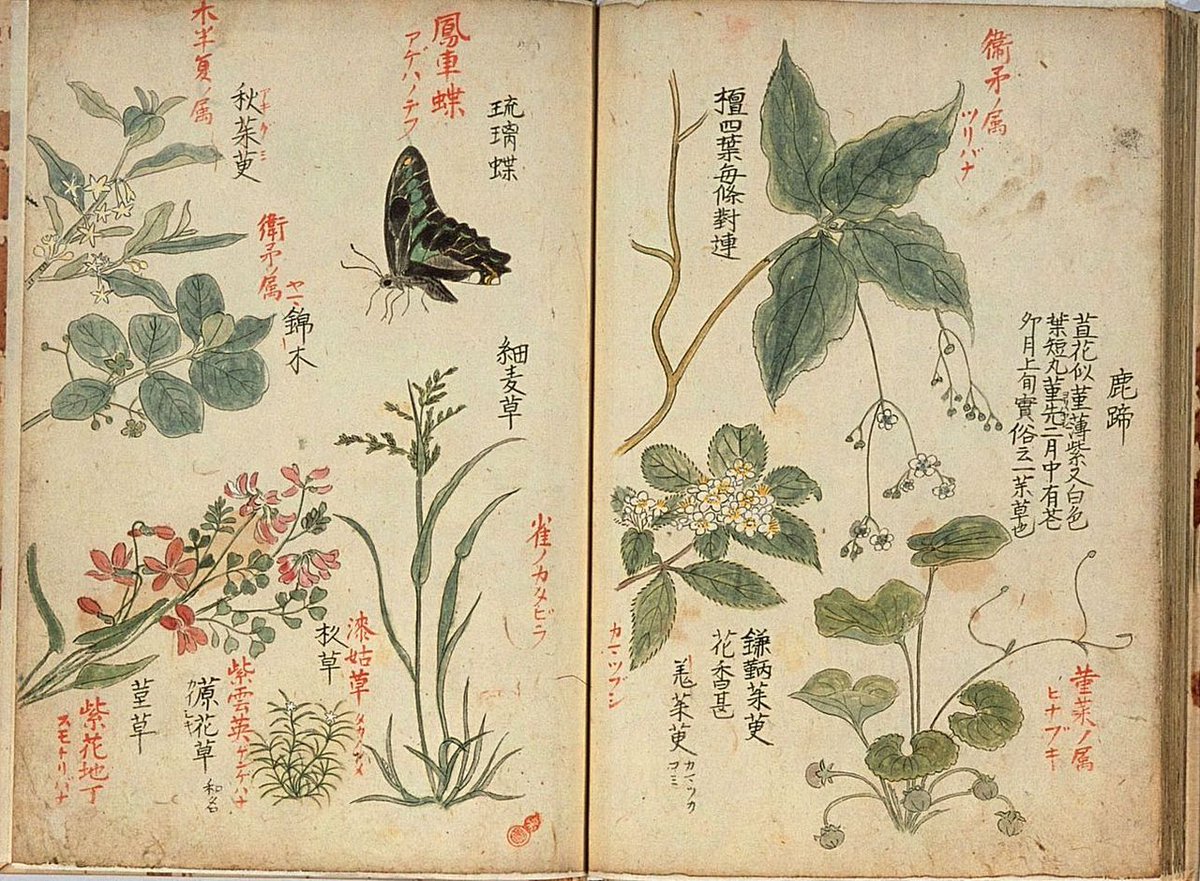 衞矛ノ属
ツリバナ
檀四葉毎條對連
鹿蹄
苴花似菫薄紫又白色
葉短丸菫先二月中有苍
夘月上旬實俗云一茱草也
菫菜ノ属
ヒナブキ
鎌𣖔茱萸
花香甚
羗茱萸
カマツカ
カマツブシ
琉璃蝶
鳳車蝶
アゲハノテフ
木半夏ノ属
秋茱萸
アキグミ
衛矛ノ属
錦木
細麦草
雀ノカタビラ
漆姑草
杦草
紫雲英
ゲンゲバナ
和名
菫草
紫花地丁
スモトリバナ